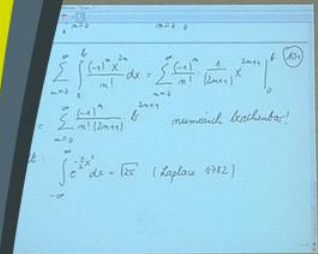 ∞ ∑ m=0 ∫ 0 b (-1)^m x^{2m} / m! dx = ∞ ∑ m=0 (-1)^m / m! 1/(2m+1) x^{2m+1} | 0 b
= ∞ ∑ m=0 (-1)^m / m!(2m+1) · b^{2m+1} numerisch berechenbar!
t:
∫ -∞ ∞ e^{-1/2 x²} dx = √2π (Laplace 1782)